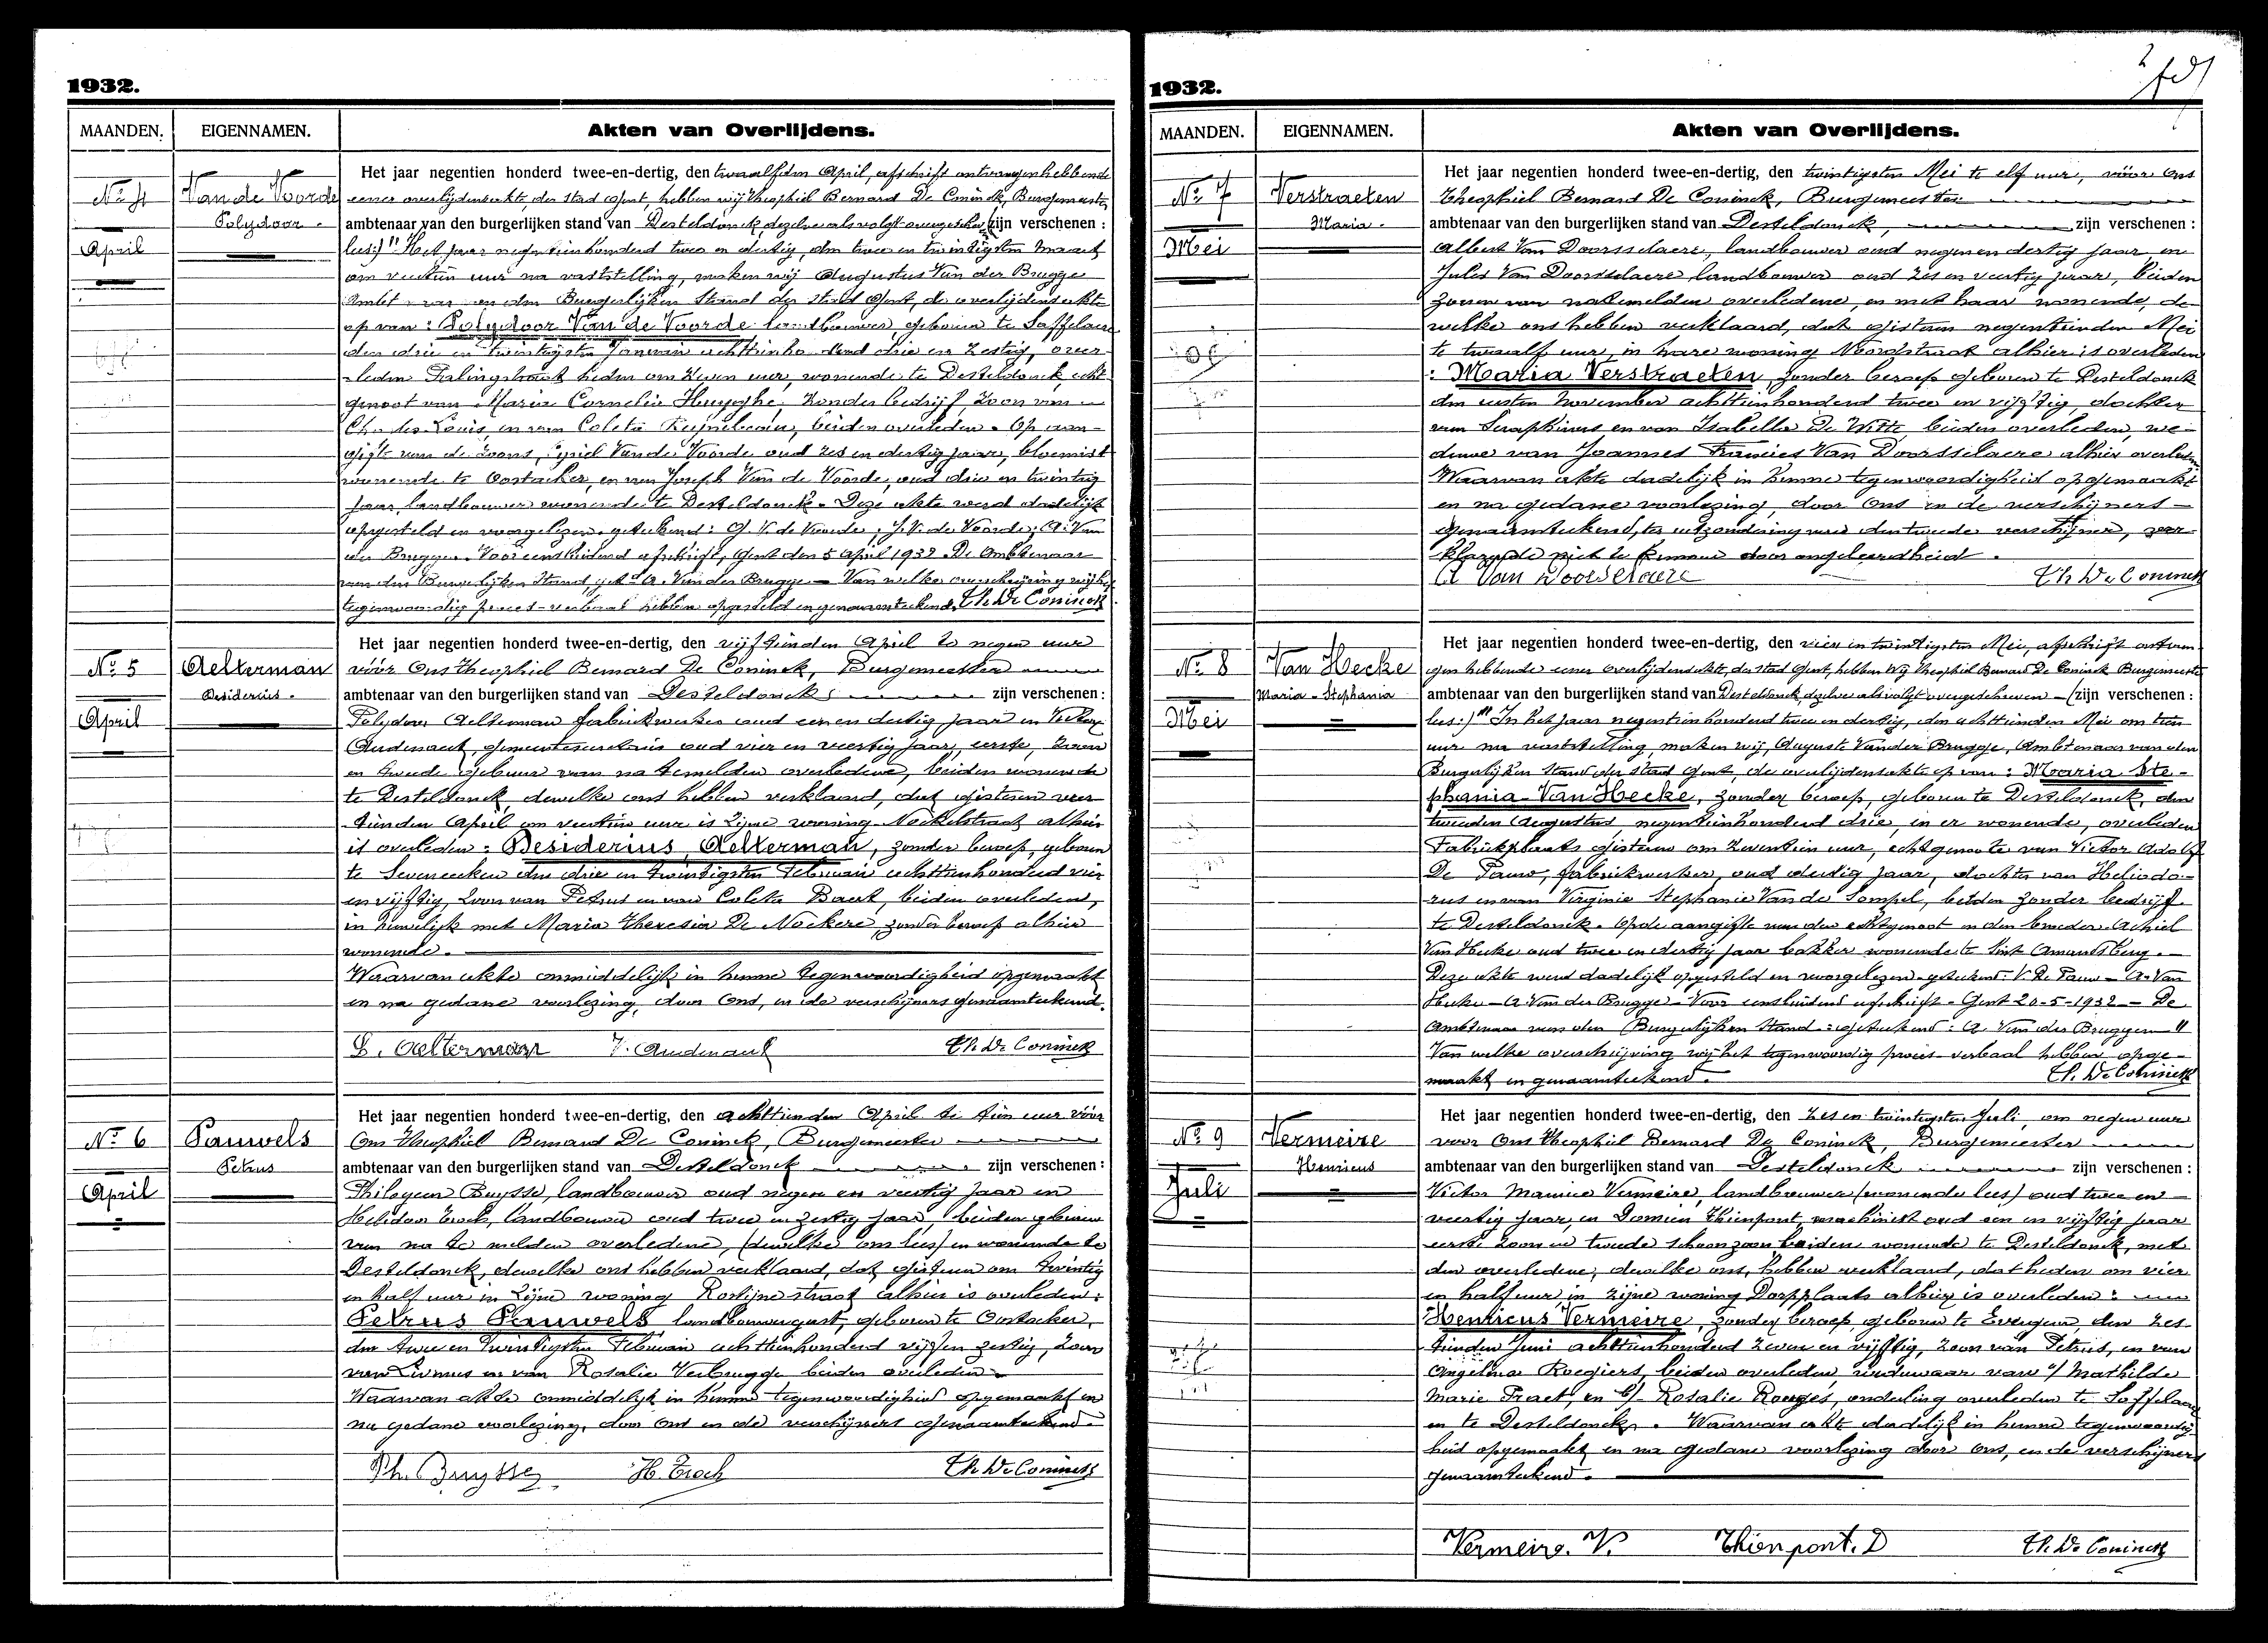 1932.
MAANDEN. EIGENNAMEN. Akten van Overlijdens.
No 4
April
Van de Voorde
Polydoor.
Het jaar negentien honderd twee-en-dertig, den twaalfden April, afschrift ontvangen hebbende
eener overlijdensakte, der stad Gent, hebben wij Theophiel Bernard De Coninck, Burgemeester,
ambtenaar van den burgerlijken stand van Desteldonck, dezelve als volgt overgeschreven zijn verschenen :
lees:) " Het jaar negentienhonderd twee en dertig, den twee en twintigsten Maart
om veertien uur na vaststelling, maken wij Augustus Van der Brugge
Ambtenaar van den Burgerlijken Stand der stad Gent, de overlijdensakte
op van : Polydoor Van de Voorde landbouwer, geboren te Saffelaere
den drie en twintigsten Januari achttienhonderd drie en zestig, over-
leden heden om zeven uur, wonende te Desteldonck, echt-
genoot van Maria Cornelia Huyghe, zonder bedrijf, zoon van
Charles Louis, en van Coleta beiden overleden. Op aan-
gifte van de zoons, Cyriel Van de Voorde oud zes en dertig jaar, bloemist
wonende te Oostacker, en van Joseph Van de Voorde, oud drie en twintig
jaar, landbouwer wonende te Desteldonck. Deze akte werd dadelijk
opgesteld en voorgelezen. geteekend: C. V. de Voorde; J. V. de Voorde; A. Van
der Brugge. Voor eensluidend afschrift, Gent den 5 April 1932. De Ambtenaar
van den Burgerlijken Stand, get. A. Van der Brugge. — Van welke overschrijving wij het
tegenwoordig proces-verbaal hebben opgesteld en genaamteekend. Th. De Coninck
No 5
April
Aelterman
Desiderius.
Het jaar negentien honderd twee-en-dertig, den vijftienden April te negen uur
vóór Ons Theophiel Bernard De Coninck, Burgemeester
ambtenaar van den burgerlijken stand van Desteldonck zijn verschenen :
Polydoor Aelterman fabriekwerker oud een en dertig jaar en Victor
Oudenaert, gemeentesecretaris oud vier en veertig jaar, eerste, zoon
en tweede gebuur van na te melden overledene, beiden wonende
te Desteldonck, dewelke ons hebben verklaard, dat gisteren veer-
tienden April om veertien uur is zijne woning alhier
is overleden : Desiderius Aelterman, zonder beroep, geboren
te Seveneecken den drie en twintigsten Februari achttienhonderd vier
en vijftig, zoon van Petrus en van Coleta Baert, beiden overleden,
in huwelijk met Maria Theresia De Nockere, zonder beroep alhier
wonende.
Waarvan akte onmiddelijk in hunne tegenwoordigheid opgemaakt
en na gedane voorlezing, door Ons, en de verschijners genaamteekend.
P. Aelterman V. Oudenaert Th. De Coninck
No 6
April
Pauwels
Petrus
Het jaar negentien honderd twee-en-dertig, den achttienden April te tien uur vóór
Ons Theophiel Bernard De Coninck, Burgemeester
ambtenaar van den burgerlijken stand van Desteldonck zijn verschenen :
Philogeen Buysse, landbouwer oud negen en veertig jaar en
Heliodoor Troch, landbouwer oud twee en zestig jaar, beiden geburen
van na te melden overledene, (dewelke ons lees) en wonende te
Desteldonck, dewelke ons hebben verklaard, dat gisteren om twintig
en half uur in zijne woning Rostijnestraat alhier is overleden :
Petrus Pauwels landbouwersgast, geboren te Oostacker,
den twee en twintigsten Februari achttienhonderd vijf en zestig, zoon
van Livinus en van Rosalie Verbrugge beiden overleden.
Waarvan akte onmiddelijk in hunne tegenwoordigheid opgemaakt en
na gedane voorlezing, door Ons en de verschijners genaamteekend.
Ph. Buysse H. Troch Th. De Coninck
1932.
MAANDEN. EIGENNAMEN. Akten van Overlijdens.
No 7
Mei
Verstraeten
Maria.
Het jaar negentien honderd twee-en-dertig, den twintigsten Mei te elf uur, vóór Ons
Theophiel Bernard De Coninck, Burgemeester
ambtenaar van den burgerlijken stand van Desteldonck, zijn verschenen :
Albert Van Doorsselaere, landbouwer oud negen en dertig jaar, en
Jules Van Doorsselaere landbouwer oud zes en veertig jaar, beiden
zonen van natemelden overledene, en met haar wonende, de-
welke ons hebben verklaard, dat gisteren negentienden Mei
te twaalf uur, in hare woning Noordstraat alhier is overleden
: Maria Verstraeten, zonder beroep geboren te Desteldonck
den eersten November achttienhonderd twee en vijftig, dochter
van Seraphinus en van Isabella De Witte, beiden overleden, we-
duwe van Joannes Francies Van Doorsselaere alhier overleden
Waarvan akte dadelijk in hunne tegenwoordigheid opgemaakt
en na gedane voorlezing, door Ons en de verschijners
genaamteekend, ter uitzondering van den tweede verschijner, ver-
klarende niet te kunnen door ongeleerdheid.
A Van Doorselaere Th. De Coninck
No 8
Mei
Van Hecke
Maria-Stephania
Het jaar negentien honderd twee-en-dertig, den vier en twintigsten Mei, afschrift ontvan-
gen hebbende eener overlijdensakte, der stad Gent, hebben Wij Theophiel Bernard De Coninck Burgemeester
ambtenaar van den burgerlijken stand van Desteldonck, dezelve als volgt overgeschreven — (zijn verschenen :
lees:) " In het jaar negentienhonderd twee en dertig, den achttienden Mei om tien
uur na vaststelling, maken wij, Auguste Van der Brugge, Ambtenaar van den
Burgerlijken Stand der stad Gent, de overlijdensakte op van : Maria Ste-
phania Van Hecke, zonder beroep, geboren te Desteldonck, den
tweeden Augustus negentienhonderd drie, in er wonende, overleden
Fabriekplaats gisteren om zeventien uur, echtgenoote van Victor Adolf
De Pauw, fabriekwerker, oud dertig jaar, dochter van Heliodo-
rus en van Virginie Stephanie Van de Sompel, beiden zonder bedrijf
te Desteldonck. Op de aangifte van den echtgenoot en den broeder Achiel
Van Hecke oud twee en dertig jaar bakker wonende te Sint Amandsberg.
Deze akte werd dadelijk opgesteld en voorgelezen. geteekend: V. De Pauw — A. Van
Hecke — A. Van der Brugge. Voor eensluidend afschrift. Gent 20-5-1932 — De
Ambtenaar van den Burgerlijken Stand. : geteekend: A. Van der Bruggen "
Van welke overschrijving wij het tegenwoordig proces-verbaal hebben opge-
maakt en genaamteekend. Th. De Coninck
No 9
Juli
Vermeire
Henricus
Het jaar negentien honderd twee-en-dertig, den zes en twintigsten Juli, om negen uur
voor Ons Theophiel Bernard De Coninck, Burgemeester
ambtenaar van den burgerlijken stand van Desteldonck zijn verschenen :
Victor Maurice Vermeire, landbouwer (wonende lees) oud twee en
veertig jaar, en Damien Thienpont, machinist oud een en vijftig jaar
eerste zoon en tweede schoonzoon beiden wonende te Desteldonck, met
den overledene, dewelke ons, hebben verklaard, dat heden om vier
en half uur, in zijne woning Dorpplaats alhier is overleden :
Henricus Vermeire, zonder beroep, geboren te Evergem, den zes-
tienden Juni achttienhonderd zeven en vijftig, zoon van Petrus, en van
Angelina Roegiers, beiden overleden, weduwaar van a/ Mathilde
Marie Praet, en b/ Rosalie Rogges, onderling overleden te Saffelaere
en te Desteldonck. Waarvan akte dadelijk in hunne tegenwoordig-
heid opgemaakt en na gedane voorlezing door Ons, en de verschijners
genaamteekend.
Vermeire. V. Thienpont. D Th. De Coninck